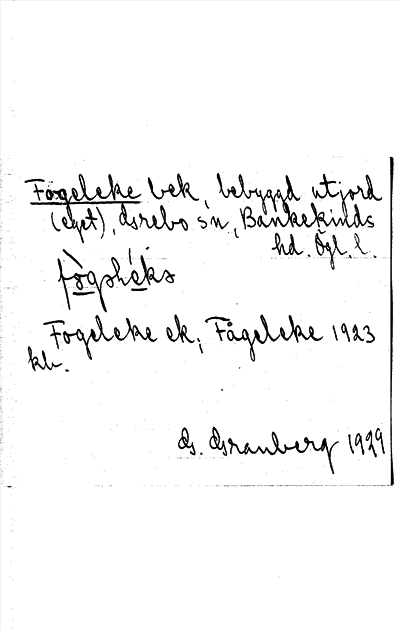 Fogeleke bek, bebyggd utjord
(eget), Grebo sn, Bankekinds
hd. Ögl. l.
Fogeleke ek; Fågeleke 1923
kb.
G. Granberg 1929